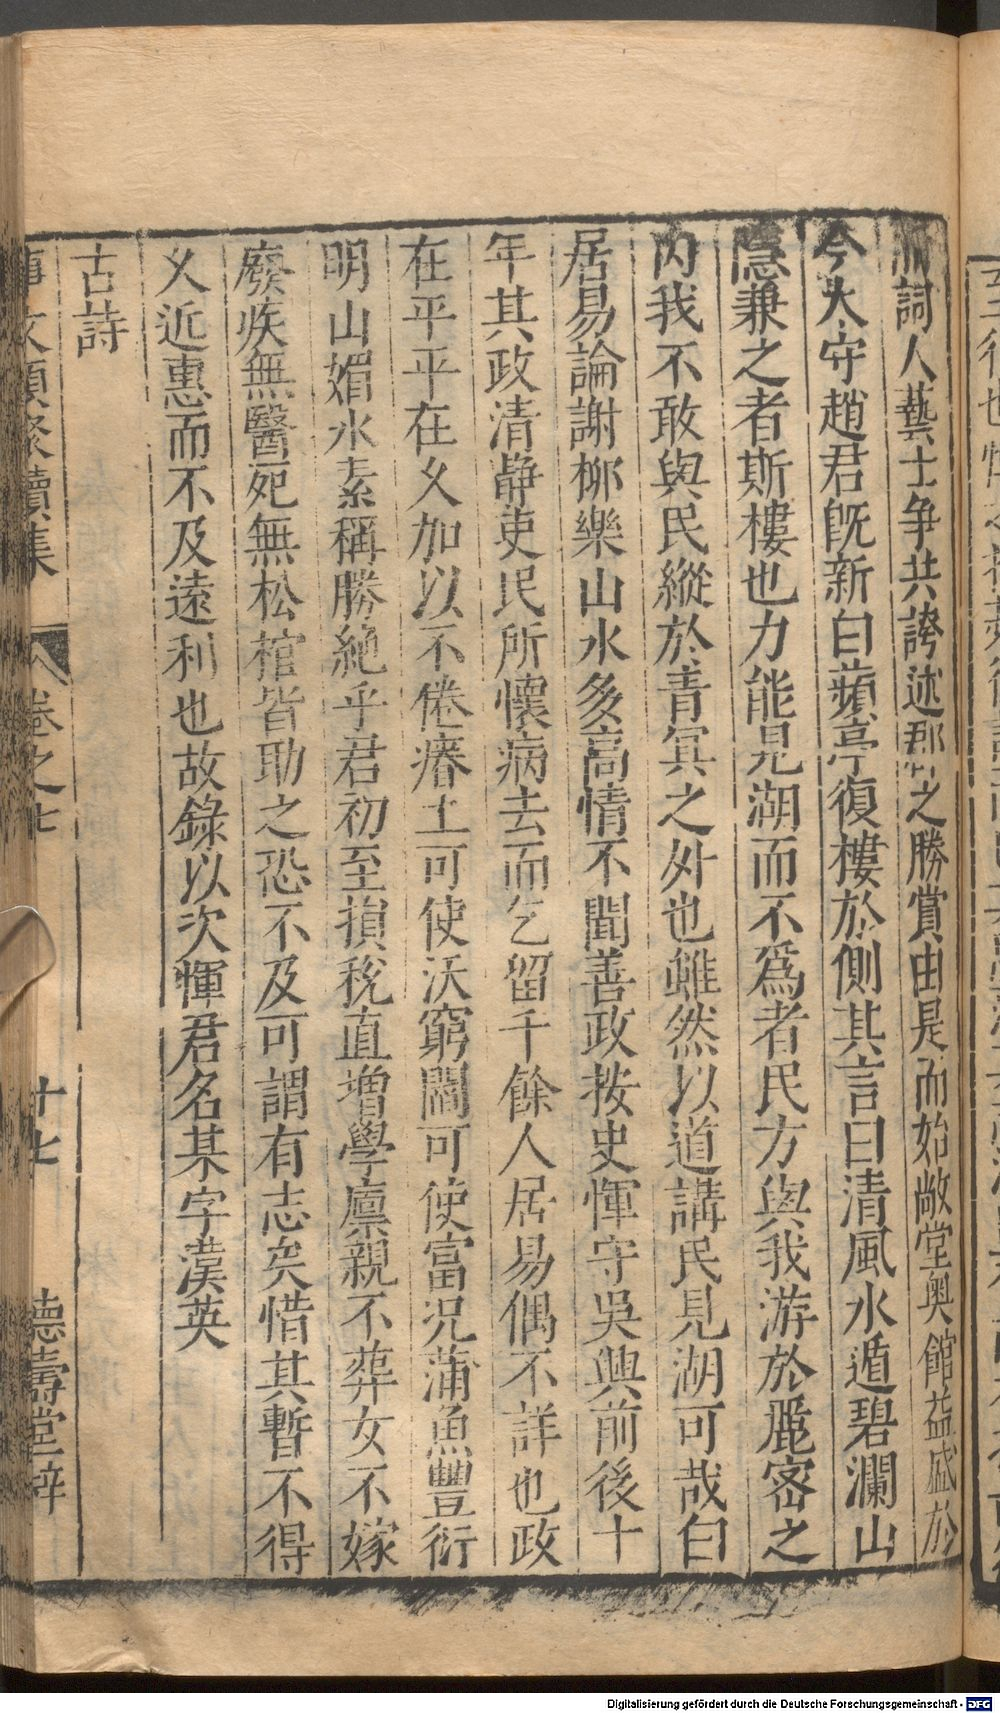 詞人藝士争共誇述郡之勝賞由是而始敞堂奥館益盛於
今大守趙君既新白蘋亭復樓於側其言曰清風水遁碧瀾山
隱兼之者斯樓也力能見湖而不為者民方與我游於庬宻之
内我不敢與民縱於青冥之外也雖然以道講民見湖可哉白
居易論謝桞樂山水多高情不聞善政按史惲守吳興前後十
年其政清静吏民所懷病去而乞留千餘人居易偶不詳也政
在平平在乆加以不倦瘠土可使沃窮閻可使富况蒲魚豐衍
明山媚水素稱勝絶乎君初至損稅直增學廪親不葬女不嫁
廢疾無醫死無松棺皆助之恐不及可謂有志矣惜其暫不得
乆近惠而不及遠利也故錄以次惲君名某字漢英
古詩
事文類聚續集 卷之七 十七 德壽堂梓
Digitalisierung gefördert durch die Deutsche Forschungsgemeinschaft - DFG